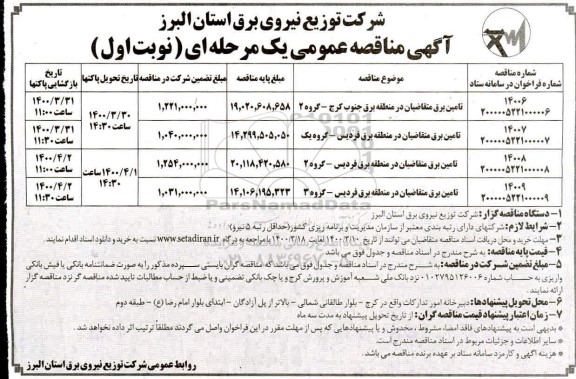 شرکت توزیع نیروی برق استان البرز
آگهی مناقصه عمومی یک مرحله ای (نوبت اول)
شماره مناقصه
شماره فراخوان در سامانه ستاد
موضوع مناقصه
مبلغ پایه مناقصه
مبلغ تضمین شرکت در مناقصه
تاریخ تحویل پاکتها
تاریخ بازگشایی پاکتها
۱۴۰۰۶
۲۰۰۰۰۰۵۲۲۱۰۰۰۰۰۶
تامین برق متقاضیان در منطقه برق جنوب کرج - گروه ۲
۱۹,۰۲۰,۶۰۸,۶۵۸
۱,۲۲۱,۰۰۰,۰۰۰
۱۴۰۰/۳/۳۰
ساعت ۱۴:۳۰
۱۴۰۰/۳/۳۱
ساعت ۱۱:۰۰
۱۴۰۰۷
۲۰۰۰۰۰۵۲۲۱۰۰۰۰۰۷
تامین برق متقاضیان در منطقه برق فردیس - گروه یک
۱۴,۲۹۹,۵۰۵,۰۵۰
۱,۰۴۰,۰۰۰,۰۰۰
۱۴۰۰/۳/۳۱
ساعت ۱۱:۳۰
۱۴۰۰۸
۲۰۰۰۰۰۵۲۲۱۰۰۰۰۰۸
تامین برق متقاضیان در منطقه برق فردیس - گروه ۲
۲۰,۱۱۸,۴۲۰,۵۸۰
۱,۲۵۴,۰۰۰,۰۰۰
۱۴۰۰/۴/۱ ساعت
۱۴:۳۰
۱۴۰۰/۴/۲
ساعت ۱۱:۰۰
۱۴۰۰۹
۲۰۰۰۰۰۵۲۲۱۰۰۰۰۰۹
تامین برق متقاضیان در منطقه برق فردیس - گروه ۳
۱۴,۱۰۶,۱۹۵,۳۲۳
۱,۰۳۱,۰۰۰,۰۰۰
۱۴۰۰/۴/۲
ساعت ۱۱:۳۰
۱- دستگاه مناقصه گزار: شرکت توزیع نیروی برق استان البرز
۲- شرایط لازم: شرکتهای دارای رتبه بندی معتبر از سازمان مدیریت و برنامه ریزی کشور (حداقل رتبه ۵ نیرو)
۳- مهلت خرید و محل دریافت اسناد مناقصه متقاضیان می توانند از تاریخ ۱۴۰۰/۳/۱۰ لغایت ۱۴۰۰/۳/۱۸ با مراجعه به درگاه www.setadiran.ir نسبت به خرید و دانلود اسناد اقدام نمایند.
۴- قیمت پایه مناقصه: به شرح مندرج در اسناد مناقصه و جدول فوق می باشد
۵- مبلغ تضمین شرکت در مناقصه: به شرح مندرج در اسناد مناقصه و جدول فوق می باشد که مناقصه گران بایستی سپرده مذکور را به صورت ضمانتنامه بانکی یا فیش بانکی
واریزی به حساب شماره ۰۱۰۲۷۹۵۱۲۶۰۰۶ نزد بانک ملی شعبه آموزش و پرورش کرج و یا چک بانکی تضمینی و یا ضبط از حساب مطالبات تایید شده مناقصه گر نزد مناقصه گزار
ارائه نمایند.
۶- محل تحویل پیشنهادها: دبیرخانه امور تدارکات واقع در کرج - بلوار طالقانی شمالی - بالاتر از پل آزادگان - ابتدای بلوار امام رضا (ع) - طبقه دوم
۷- زمان اعتبار پیشنهاد قیمت مناقصه گران: از تاریخ تحویل پیشنهاد به مدت سه ماه
* بدیهی است به پیشنهادهای فاقد امضا، مشروط، مخدوش و یا پیشنهادهایی که پس از مهلت مقرر در این فراخوان واصل می گردند مطلقا ترتیب اثر داده نخواهد شد.
* سایر اطلاعات و جزئیات مربوط در اسناد مناقصه مندرج است.
* هزینه آگهی و کارمزد سامانه ستاد بر عهده برنده مناقصه می باشد.
روابط عمومی شرکت توزیع نیروی برق استان البرز
ParsNamadData